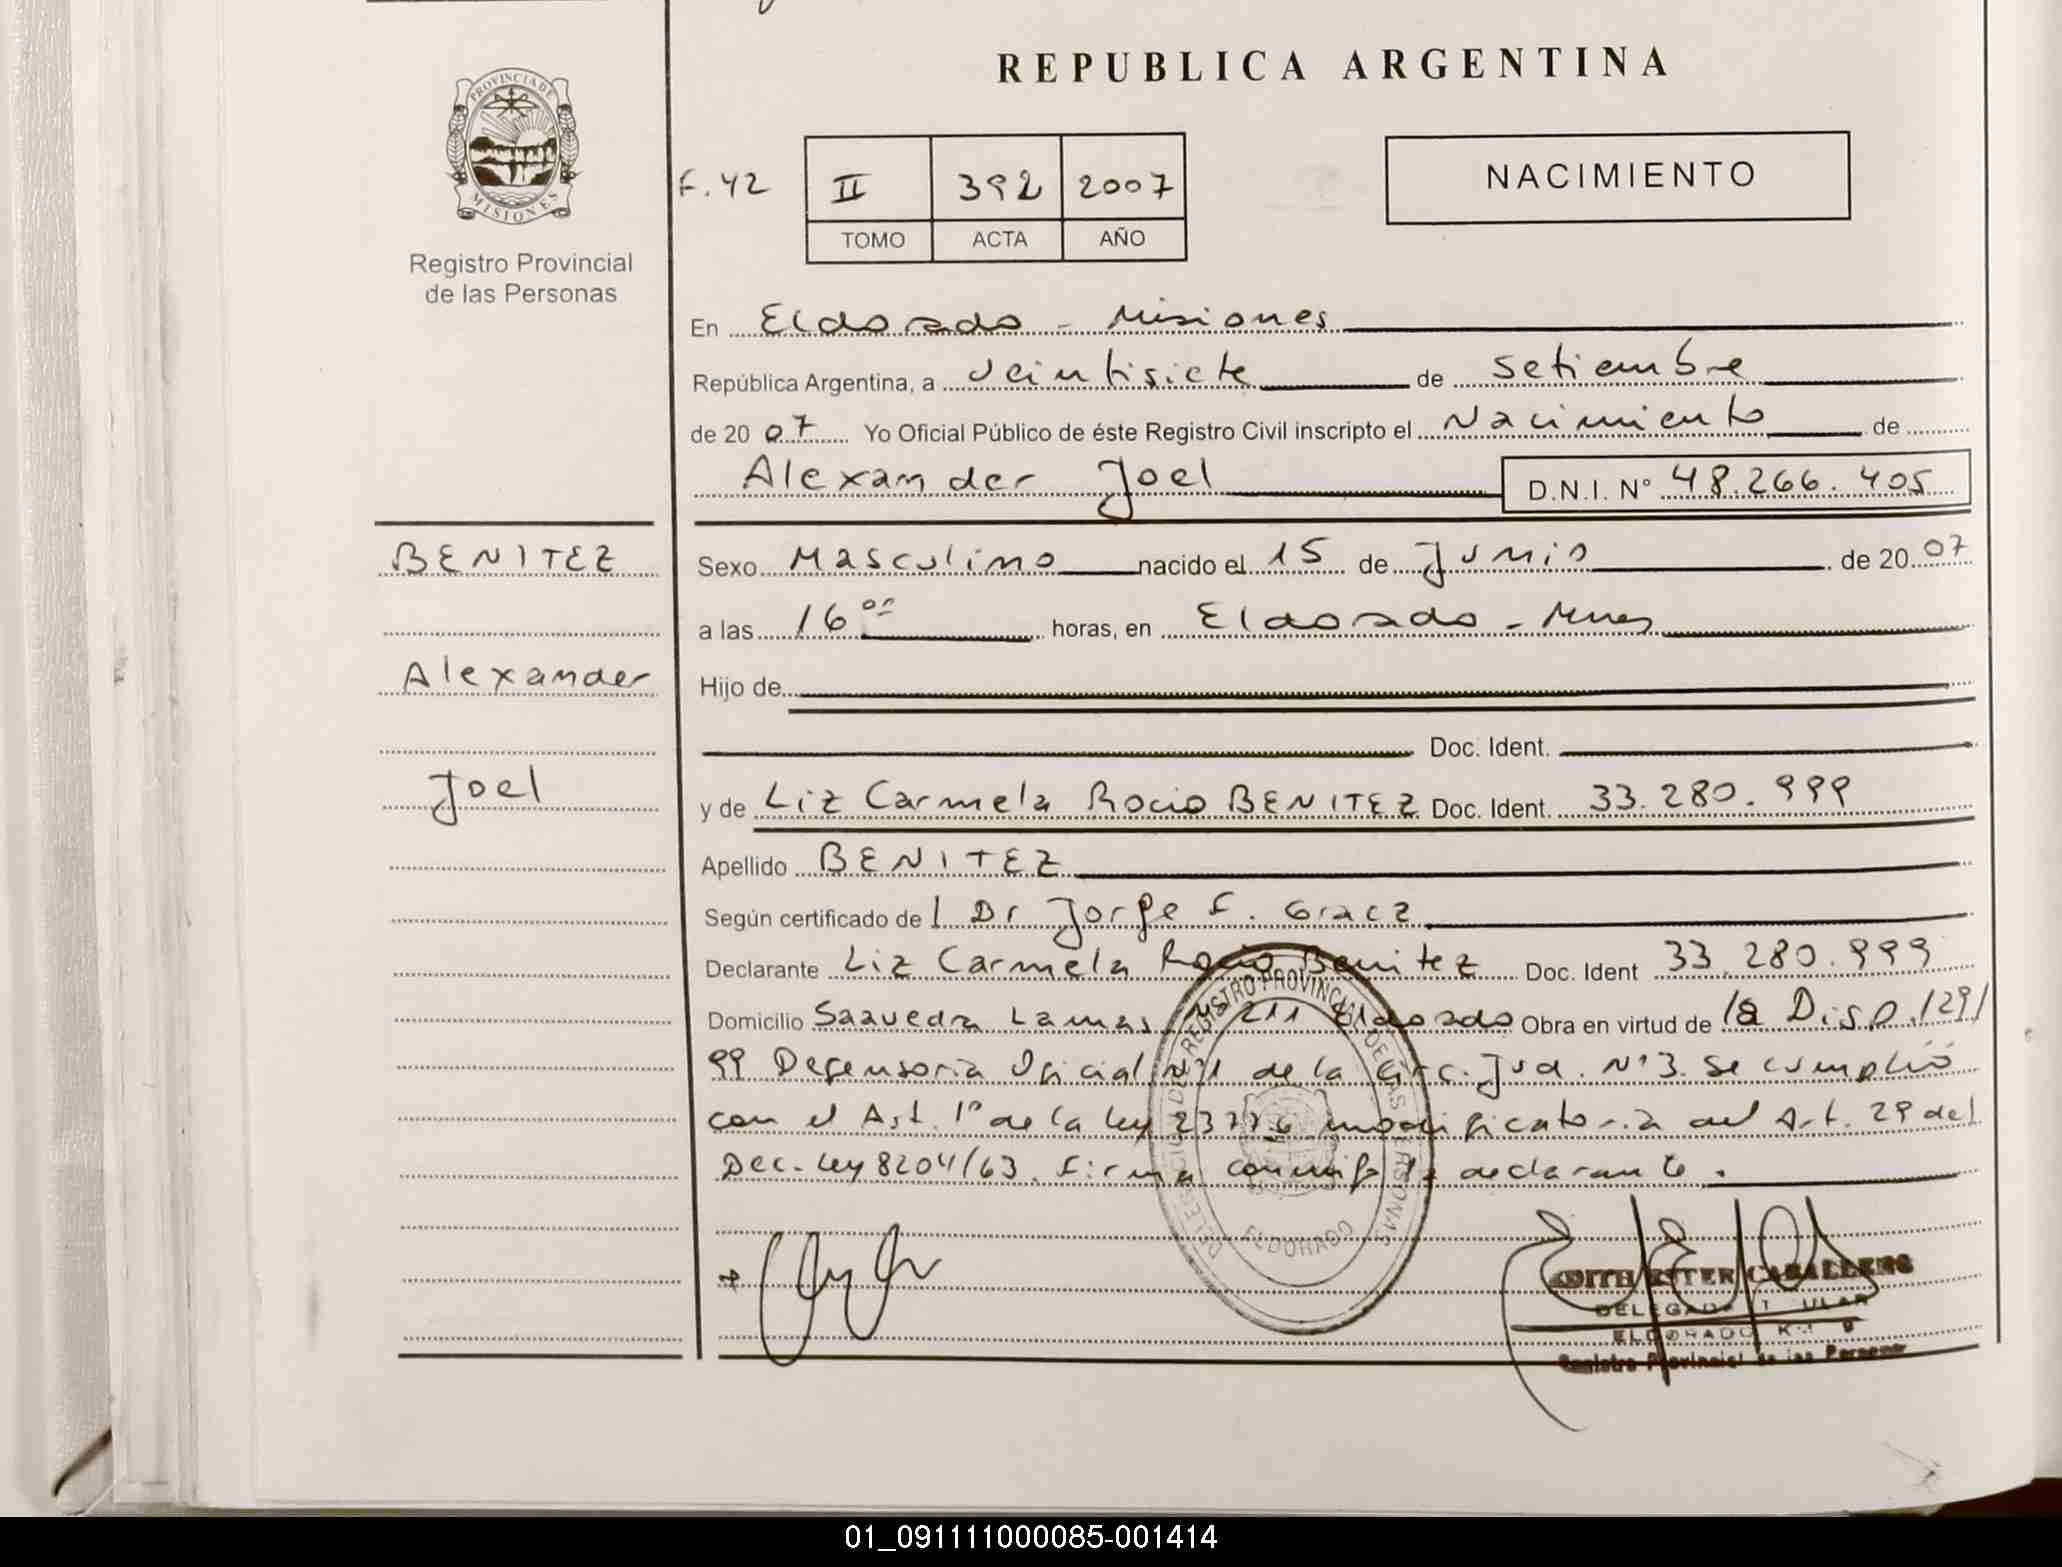 REPUBLICA ARGENTINA
PROVINCIA DE MISIONES
Registro Provincial
de las Personas
F. 42
II 392 2007
TOMO ACTA AÑO
NACIMIENTO
En Eldorado - Misiones
República Argentina, a veintisiete de Setiembre
de 20 07 Yo Oficial Público de éste Registro Civil inscripto el Nacimiento de
Alexander Joel D.N.I. N° 48.266.405
BENITEZ
Alexander
Joel
Sexo Masculino nacido el 15 de Junio de 20 07
a las 16 oo horas, en Eldorado - Mnes
Hijo de
Doc. Ident.
y de Liz Carmela Rocio BENITEZ Doc. Ident. 33.280.999
Apellido BENITEZ
Según certificado de l Dr Jorge F. Gracz
Declarante Liz Carmela Rocio Benitez Doc. Ident 33.280.999
Domicilio Saavedra Lamas N° 211 Eldorado Obra en virtud de la Disp. 129/
99 Defensoria Oficial N°1 de la Circ. Jud. N°3. Se cumplió
con el Art. 1° de la ley 23776 modificatoria del Art. 29 del
Dec-Ley 8204/63. Firma conmigo la declarante.
DELEGACION DEL REGISTRO PROVINCIAL DE LAS PERSONAS
ELDORADO
EDITH ESTER CABALLERO
DELEGADA TITULAR
ELDORADO KM 9
Registro Provincial de las Personas
01_091111000085-001414